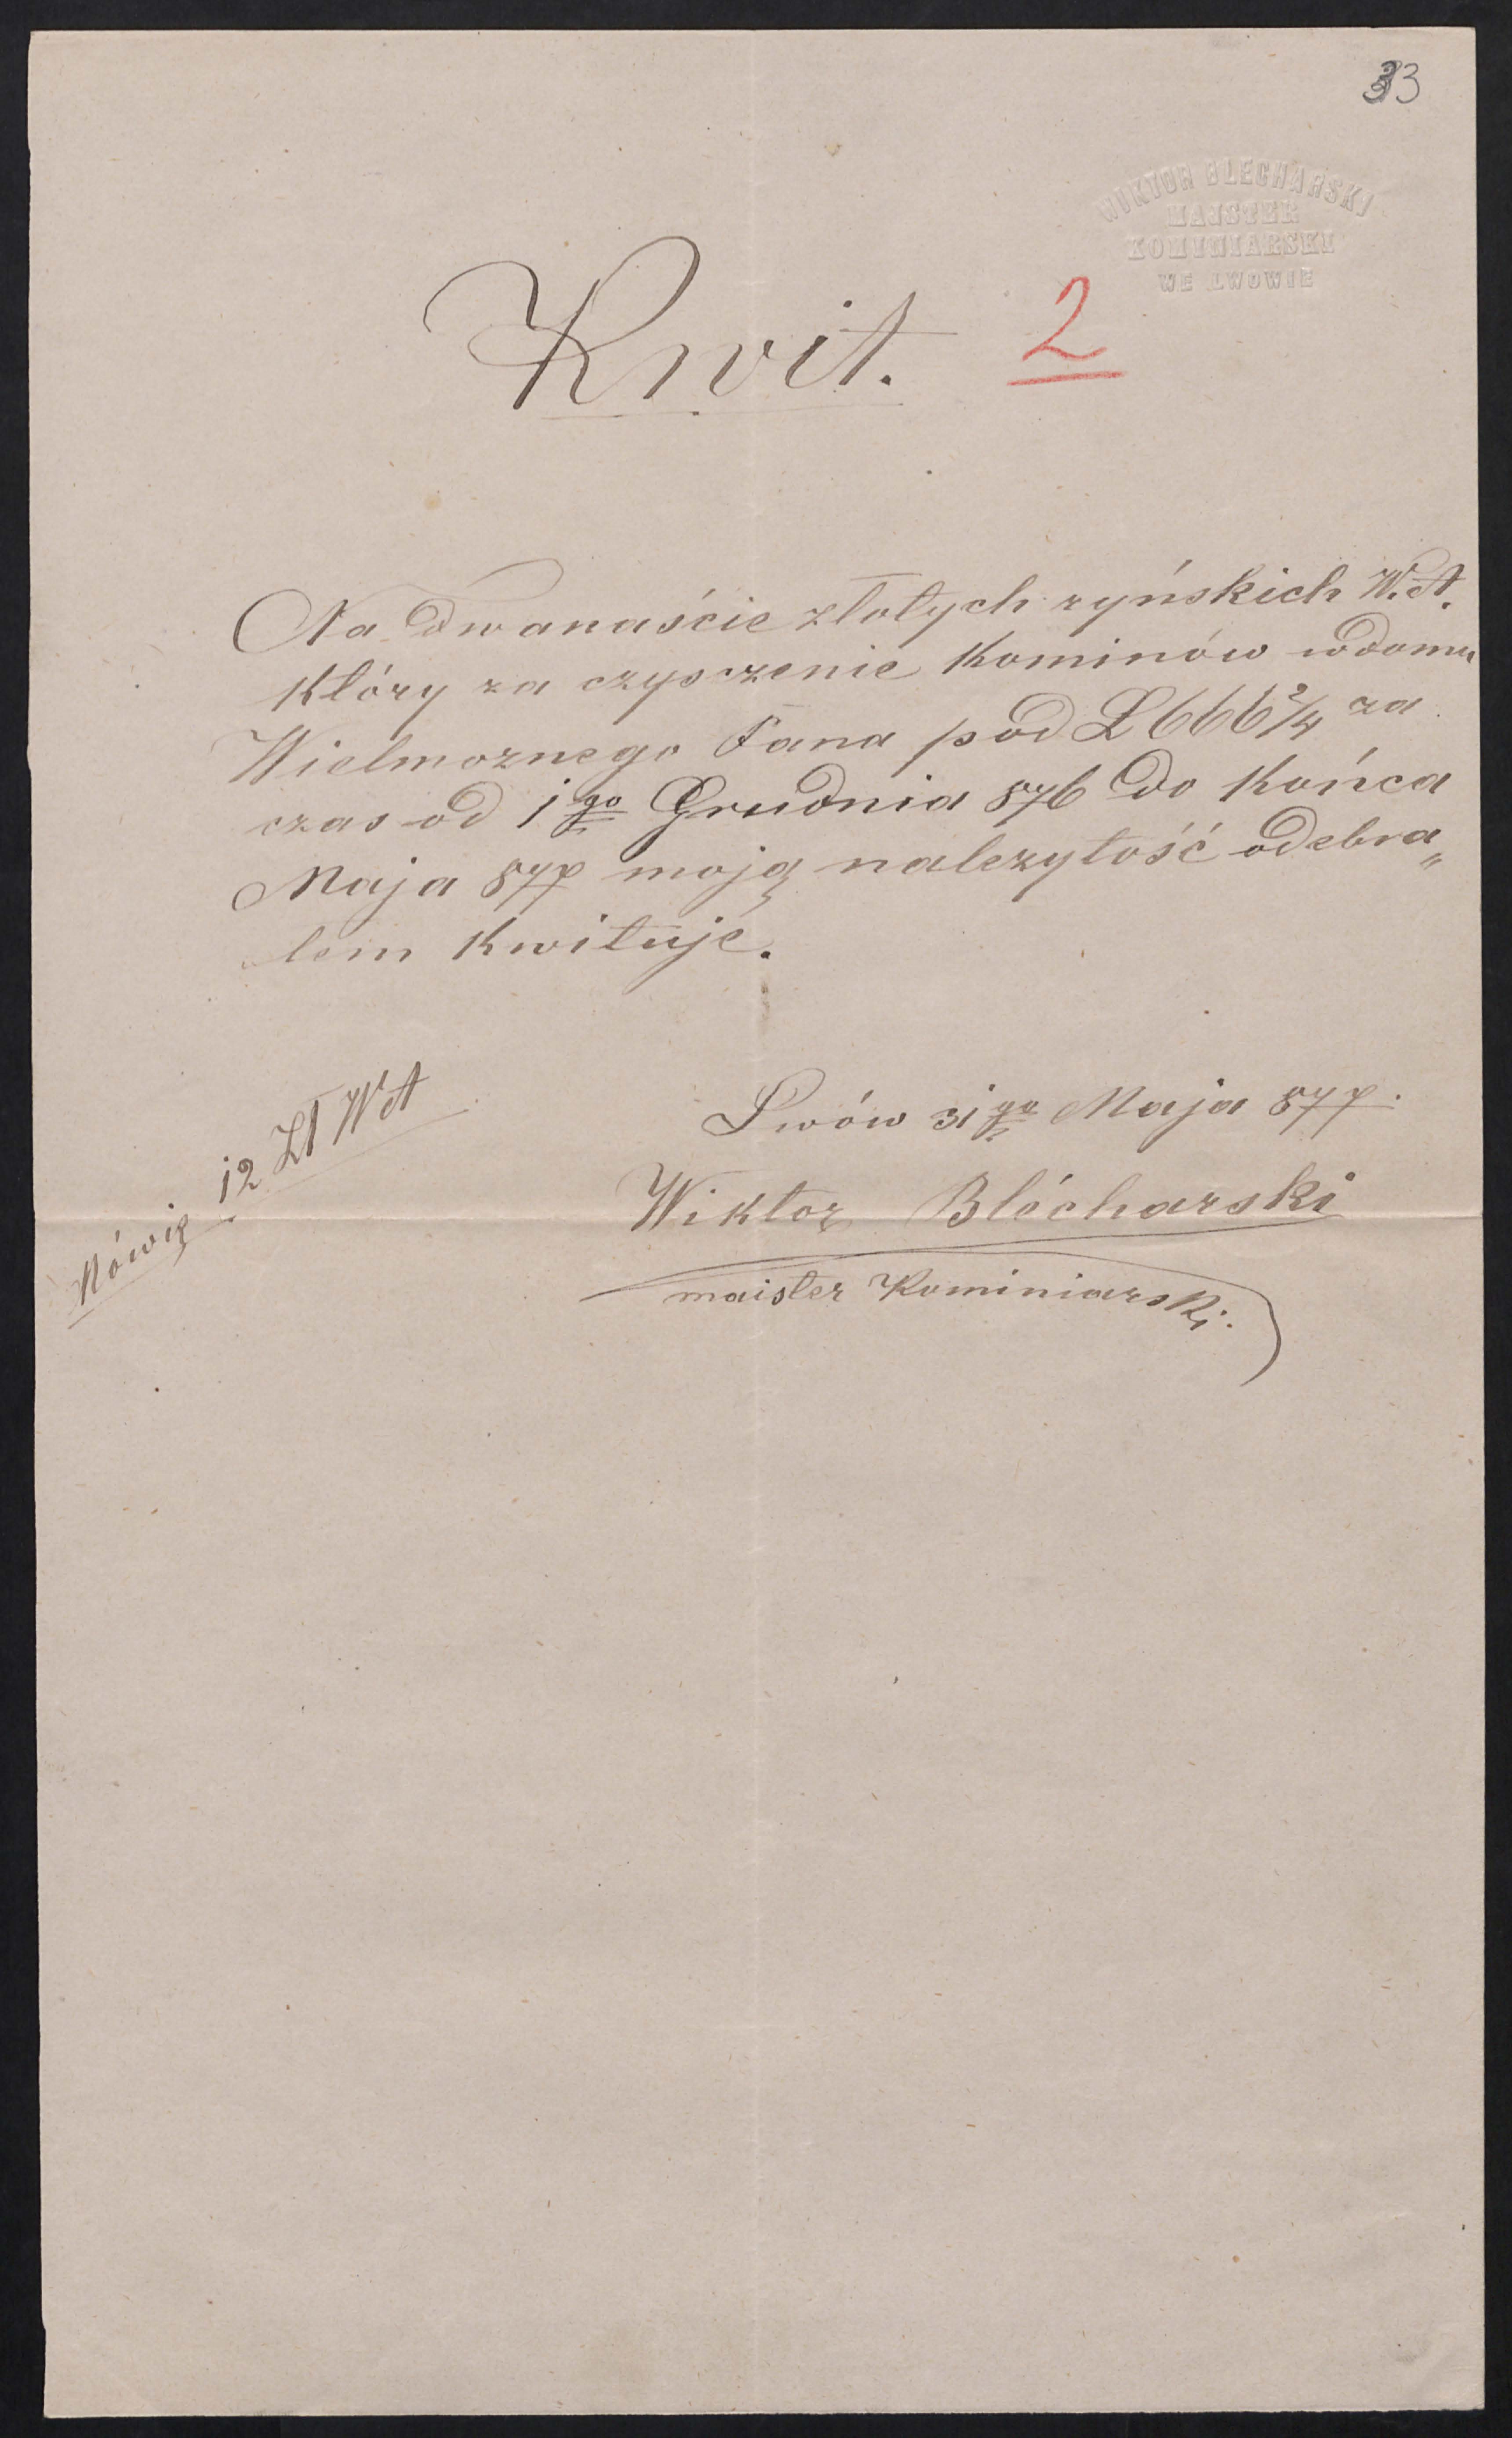 33
WIKTOR BLECHARSKI
MAJSTER
KOMINIARSKI
WE LWOWIE
Kwit. 2
Na dwanaście złotych ryńskich W. A.
który za czysczenie kominów w domu
Wielmoznego Pana pod L 666 2/4 za
czas od 1go Grudnia 876 do końca
Maja 877 moją nalezytość odebra„
„lem kwituje.
Lwów 31go Maja 877.
Wiktor Blécharski
maister Kominiarski.
Mówię 12 Zł WA